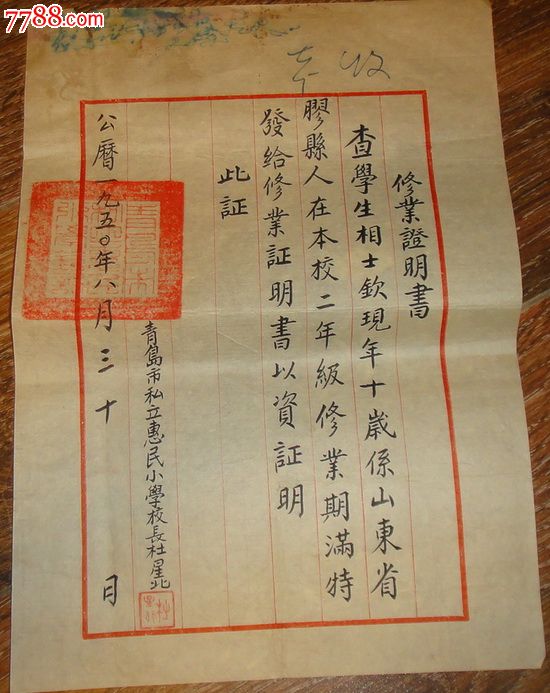 7788.com
收
修業證明書
查學生相士欽現年十歲係山東省
膠縣人在本校二年級修業期滿特
發給修業証明書以資証明
此証
青島市私立惠民小學校長杜星北
公曆一九五〇年八月三十日